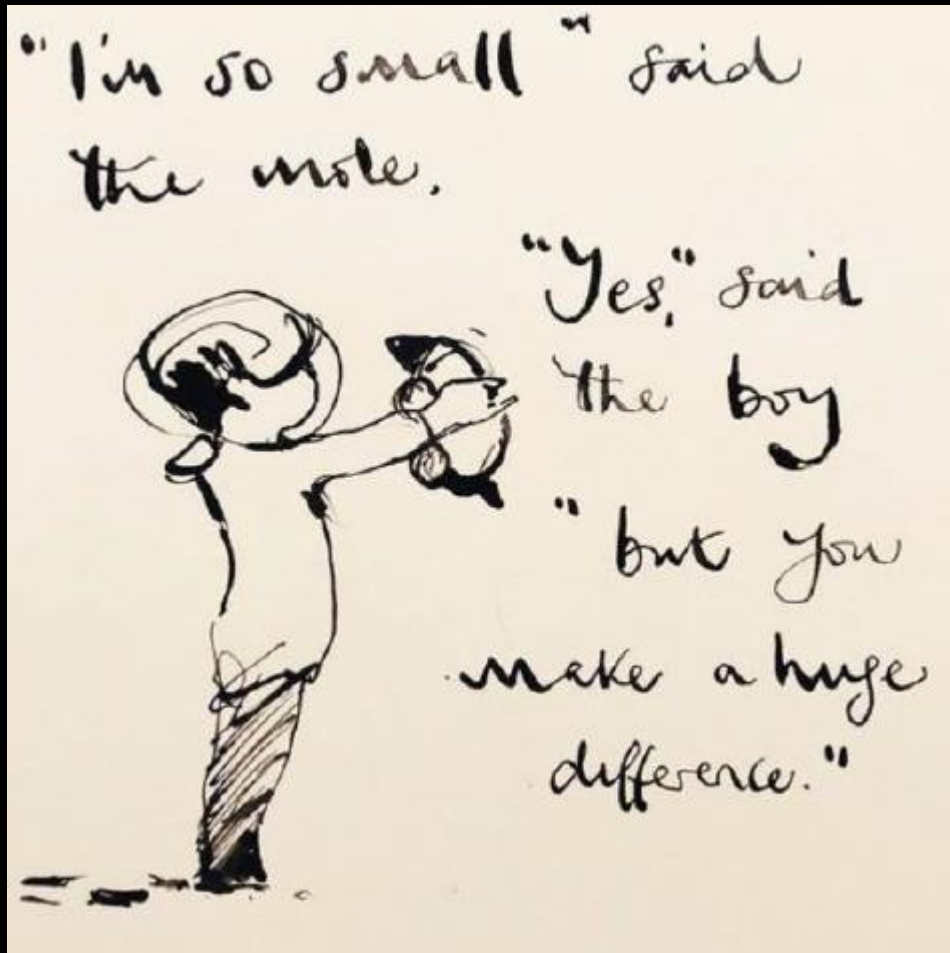 "I'm so small" said
the mole.
"Yes," said
the boy
"but you
make a huge
difference."